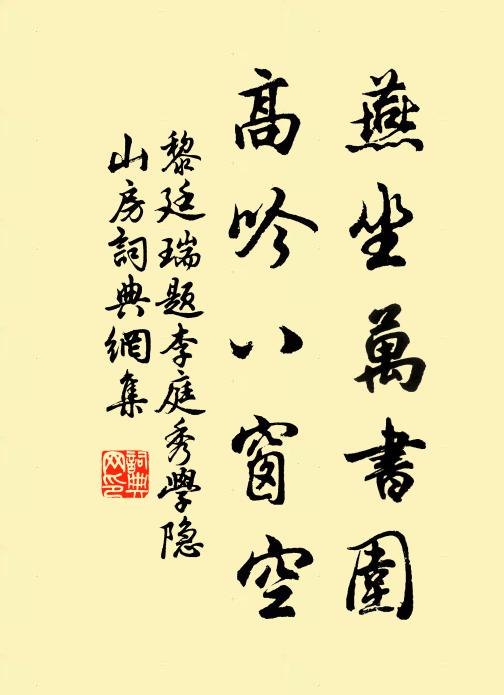 燕坐萬書圍
高吟八窗空
黎廷瑞題李庭秀學隐
山房詞典網集
詞典
网印